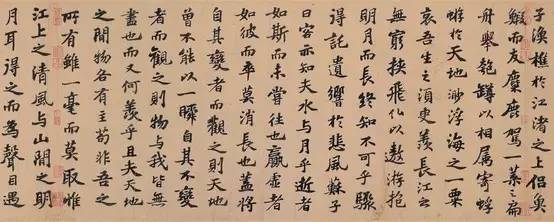 子漁樵於江渚之上侶魚
鰕而友麋鹿駕一葉之扁
舟舉匏罇以相屬寄蜉
蝣於天地渺浮海之一粟
哀吾生之須臾羨長江之
無窮挾飛仙以遨游抱
明月而長終知不可乎驟
得託遺響於悲風蘇子
曰客亦知夫水與月乎逝者
如斯而未嘗往也贏虛者
如彼而卒莫消長也蓋將
自其變者而觀之則天地
曾不能以一瞬自其不變
者而觀之則物與我皆無
盡也而又何羨乎且夫天地
之間物各有主苟非吾之
所有雖一毫而莫取惟
江上之清風與山間之明
月耳得之而為聲目遇